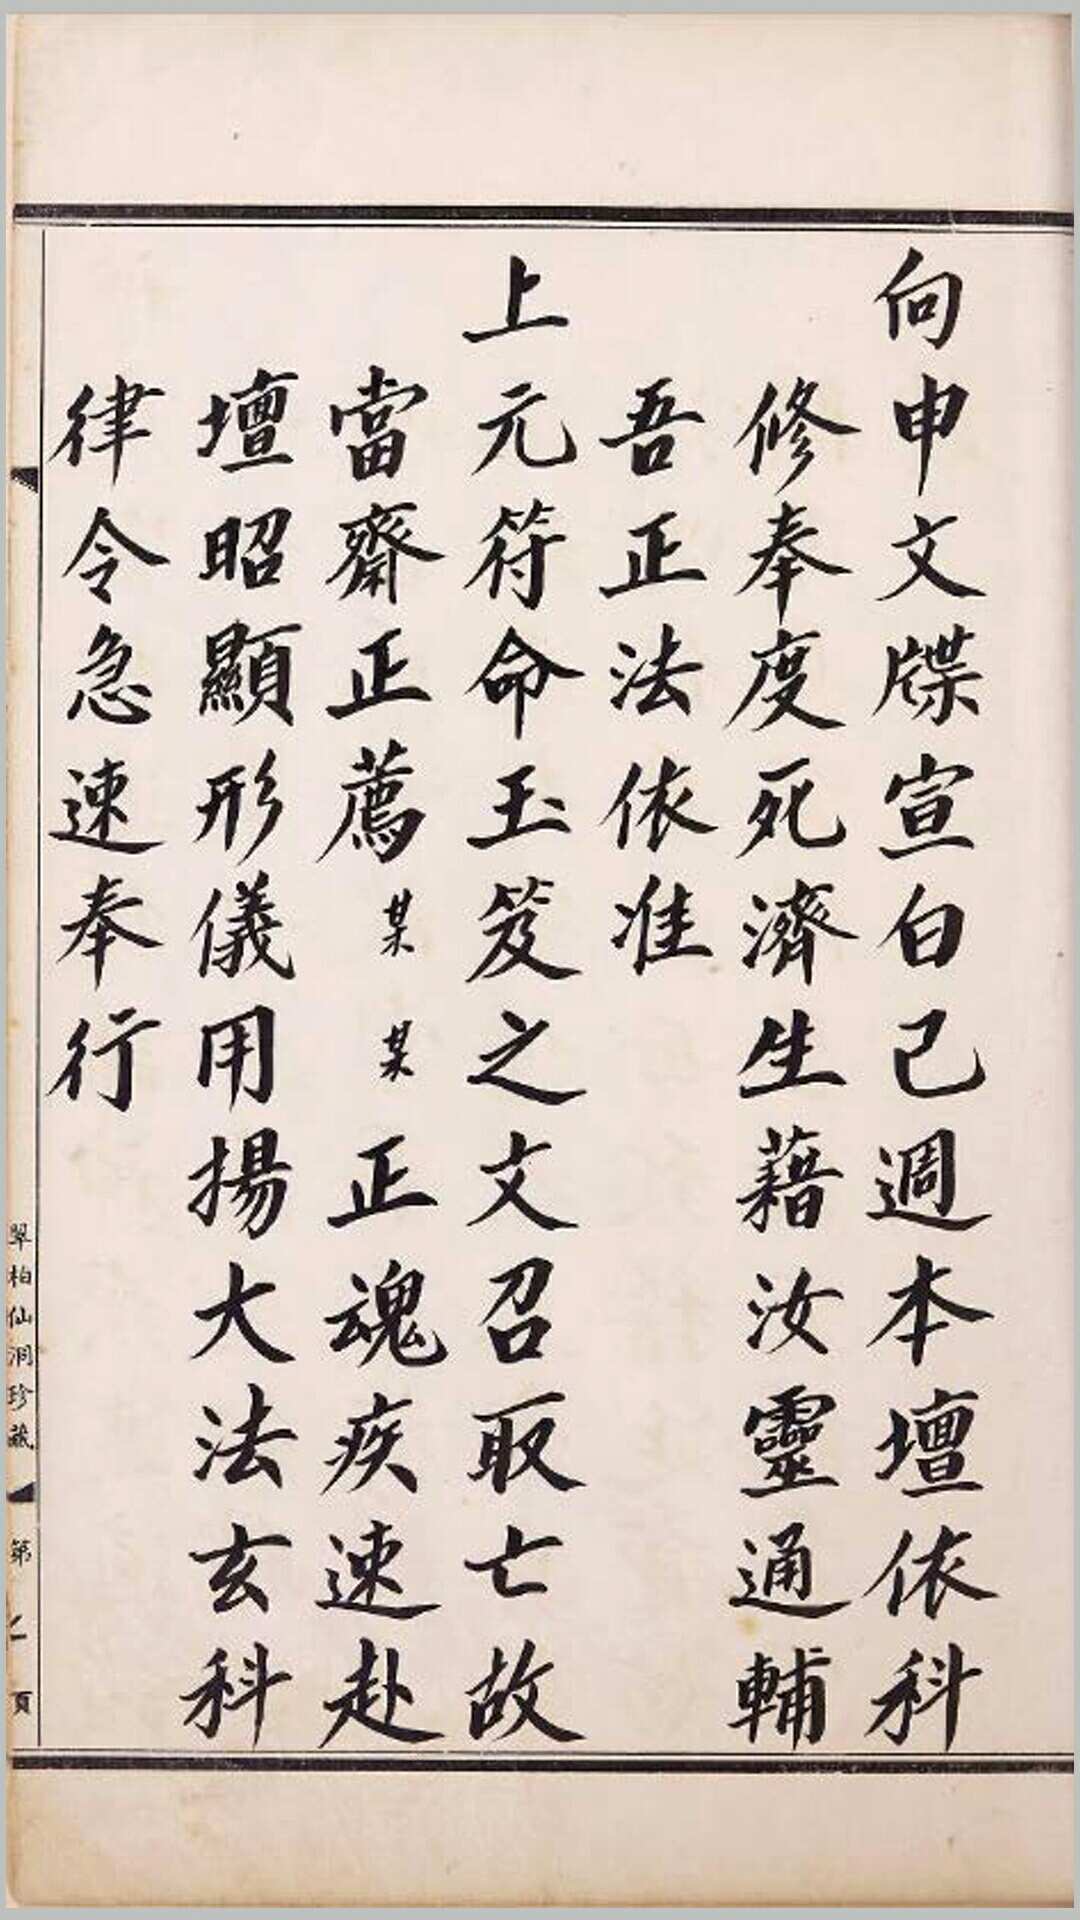 向申文牒宣白已週本壇依科
修奉度死濟生藉汝靈通輔
吾正法依准
上元符命玉笈之文召取亡故
當齋正薦某某正魂疾速赴
壇昭顯形儀用揚大法玄科
律令急速奉行
翠柏仙洞珍藏
第
頁